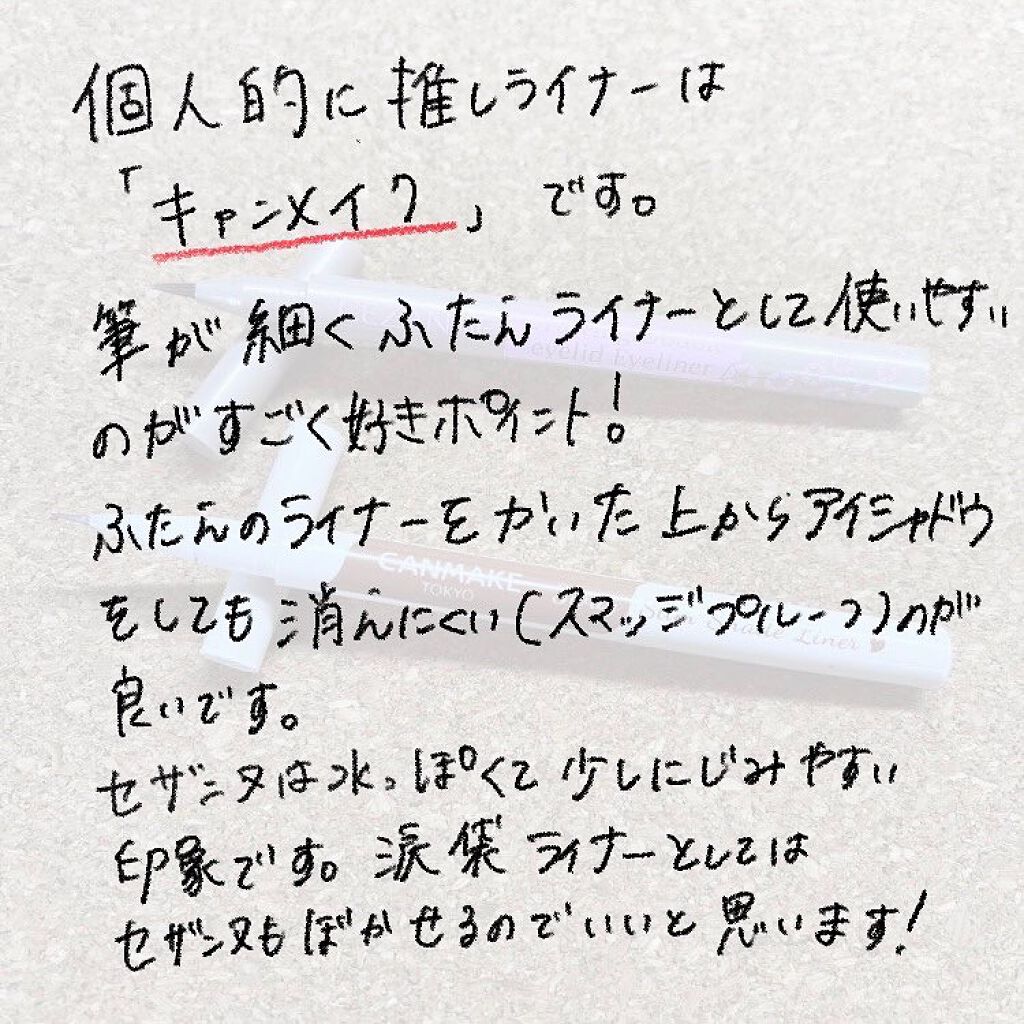 個人的に推しライナーは
「キャンメイク」です。
筆が細くふたえライナーとして使いやすい
eyelid Eyeliner
のがすごく好きポイント!
ふたえのライナーをかいた上からアイシャドウ
CANMAKE
TOKYO
をしても消えにくい(スマッジプルーフ)のが
Liner
良いです。
セザンヌは水っぽくて少しにじみやすい
印象です。涙袋ライナーとしては
セザンヌもぼかせるのでいいと思います!